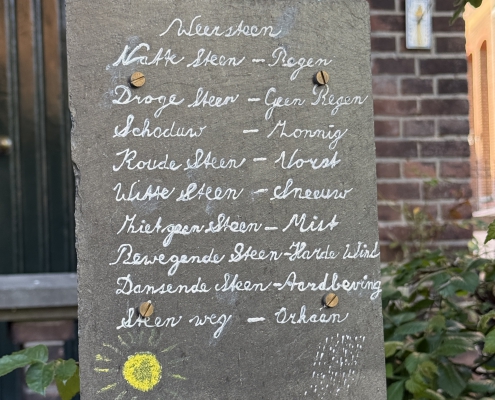 Weersteen
Natte Steen - Regen
Droge Steen - Geen Regen
Schaduw - Zonnig
Koude Steen - Vorst
Witte Steen - Sneeuw
Ziet geen Steen - Mist
Bewegende Steen - Harde Wind
Dansende Steen - Aardbeving
Steen weg - Orkaan